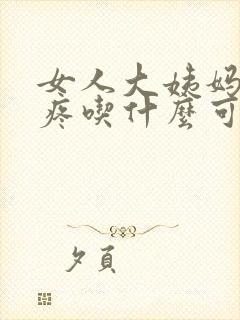 女人大姨妈
疼喫什麼可
夕頁